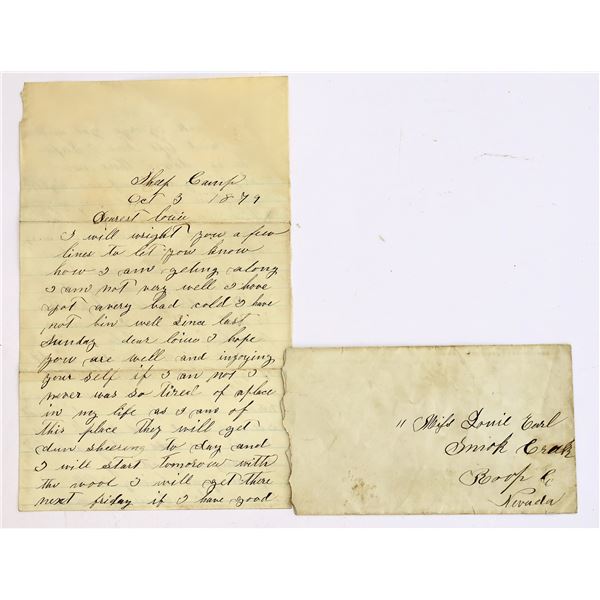 Sheep Camp
Oct 3 1879
Dearest louie
I will wright you a few
lines to let you know
how I am geting along
I am not very well I have
got avery bad cold I have
not bin well Since last
Sunday dear louie I hope
you are well and injoying
your self if I am not I
never was so tired of aplace
in my life as I am of
this place they will get
dun sheering to day and
I will start tomorow with
the wool I will get there
next friday if I have good
" Miss Louie Earl
Smok Creak
Roop Co
Nevada